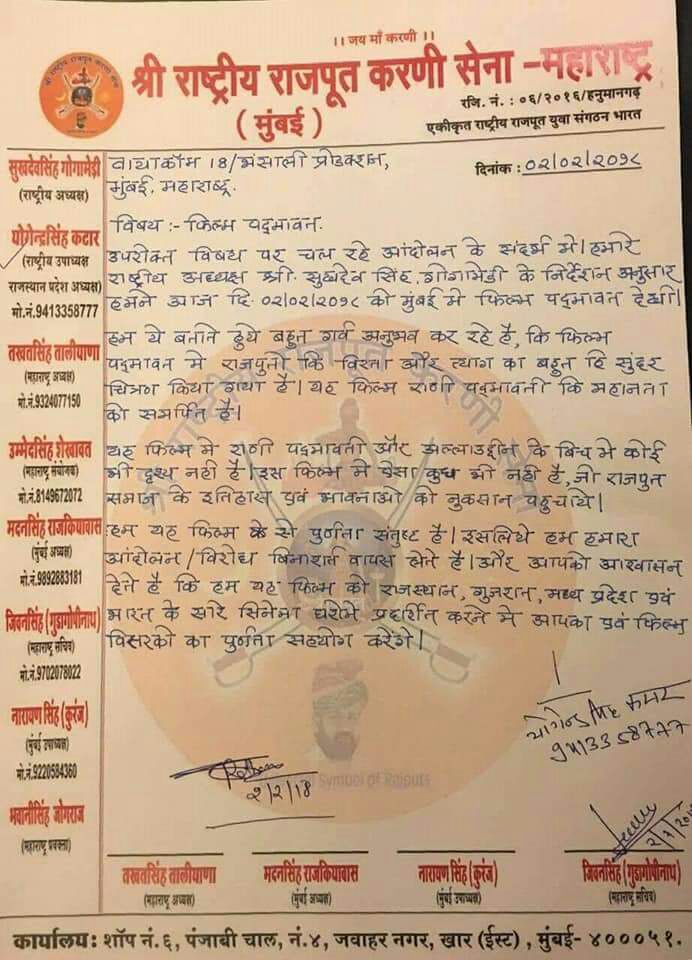 ।। जय माँ करणी ।।
श्री राष्ट्रीय राजपूत करणी सेना -महाराष्ट्र
(मुंबई)
रजि. नं. : ०६/२०१६/हनुमानगढ़
एकीकृत राष्ट्रीय राजपूत युवा संगठन भारत
सुखदेवसिंह गोगामेडी
(राष्ट्रीय अध्यक्ष)
योगेन्द्रसिंह कटार
(राष्ट्रीय उपाध्यक्ष
राजस्थान प्रदेश अध्यक्ष)
मो.नं.9413358777
तखतसिंह तालीयाणा
(महाराष्ट्र अध्यक्ष)
मो.नं.9324077150
उम्मेदसिंह शेखावत
(महाराष्ट्र संयोजक)
मो.नं.8149672072
मदनसिंह राजकियावास
(मुंबई अध्यक्ष)
मो.नं.9892883181
जिवनसिंह (गुडागोपीनाथ)
(महाराष्ट्र सचिव)
मो.नं.9702078022
नारायण सिंह (कुरंज)
(मुंबई उपाध्यक्ष)
मो.नं.9220584360
भवानीसिंह जोगराज
(महाराष्ट्र प्रवक्ता)
वायाकॉम 18/भंसाली प्रोडक्शन,
दिनांक : ०२/०२/२०१८
मुंबई, महाराष्ट्र.
विषय :- फिल्म पद्मावत.
उपरोक्त विषय पर चल रहे आंदोलन के संदर्भ मे। हमारे
राष्ट्रीय अध्यक्ष श्री. सुखदेव सिंह गोगामेडी के निर्देशन अनुसार
हमने आज दि. ०२/०२/२०१८ को मुंबई मे फिल्म पद्मावत देखी।
हम ये बताते हुये बहुत गर्व अनुभव कर रहे है, कि फिल्म
पद्मावत मे राजपुतो कि विरता और त्याग का बहुत हि सुंदर
चित्रण किया गया है। यह फिल्म राणी पद्मावती कि महानता
को समर्पित है।
यह फिल्म मे राणी पद्मावती और अल्लाउद्दीन के बिच मे कोई
भी दृश्य नही है। इस फिल्म मे ऐसा कुछ भी नही है, जो राजपुत
समाज के इतिहास एवं भावनाओ को नुकसान पहुचाये।
हम यह फिल्म से पुर्णता संतुष्ट है। इसलिये हम हमारा
आंदोलन/विरोध बिनाशर्त वापस लेते है। और आपको आश्वासन
देते है कि हम यह फिल्म को राजस्थान, गुजरात, मध्य प्रदेश एवं
भारत के सारे सिनेमा घरोमे प्रदर्शित करने मे आपका एवं फिल्म
वितरको का पुर्णता सहयोग करेंगे।
9413358777
2/2/18
Symbol of Rajputs
तखतसिंह तालीयाणा
(महाराष्ट्र अध्यक्ष)
मदनसिंह राजकियावास
(मुंबई अध्यक्ष)
नारायण सिंह (कुरंज)
(मुंबई उपाध्यक्ष)
जिवनसिंह (गुडागोपीनाथ)
(महाराष्ट्र सचिव)
कार्यालय: शॉप नं.६, पंजाबी चाल, नं.४, जवाहर नगर, खार (ईस्ट), मुंबई- ४०००५१.